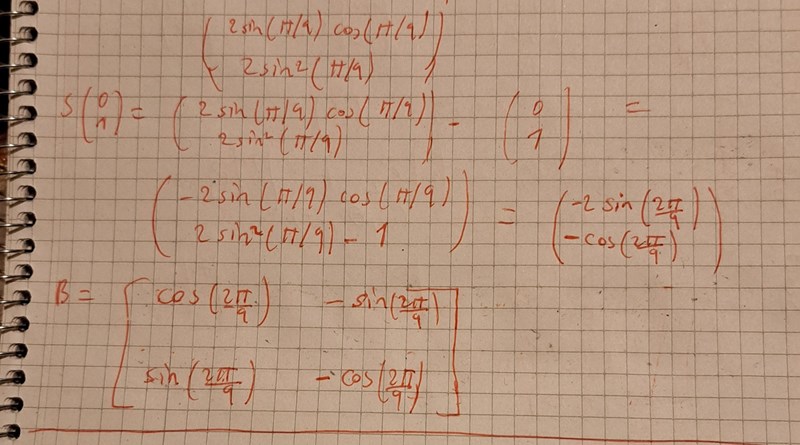 ( 2sin(π/9) cos(π/9)
2sin²(π/9) )
S(0 1) = ( 2 sin(π/9) cos(π/9)
2sin²(π/9) ) - (0 1) =
( -2sin(π/9) cos(π/9)
2sin²(π/9) - 1 ) = ( -2 sin(2π/9)
-cos(2π/9) )
B = [ cos(2π/9) -sin(2π/9)
sin(2π/9) -cos(2π/9) ]